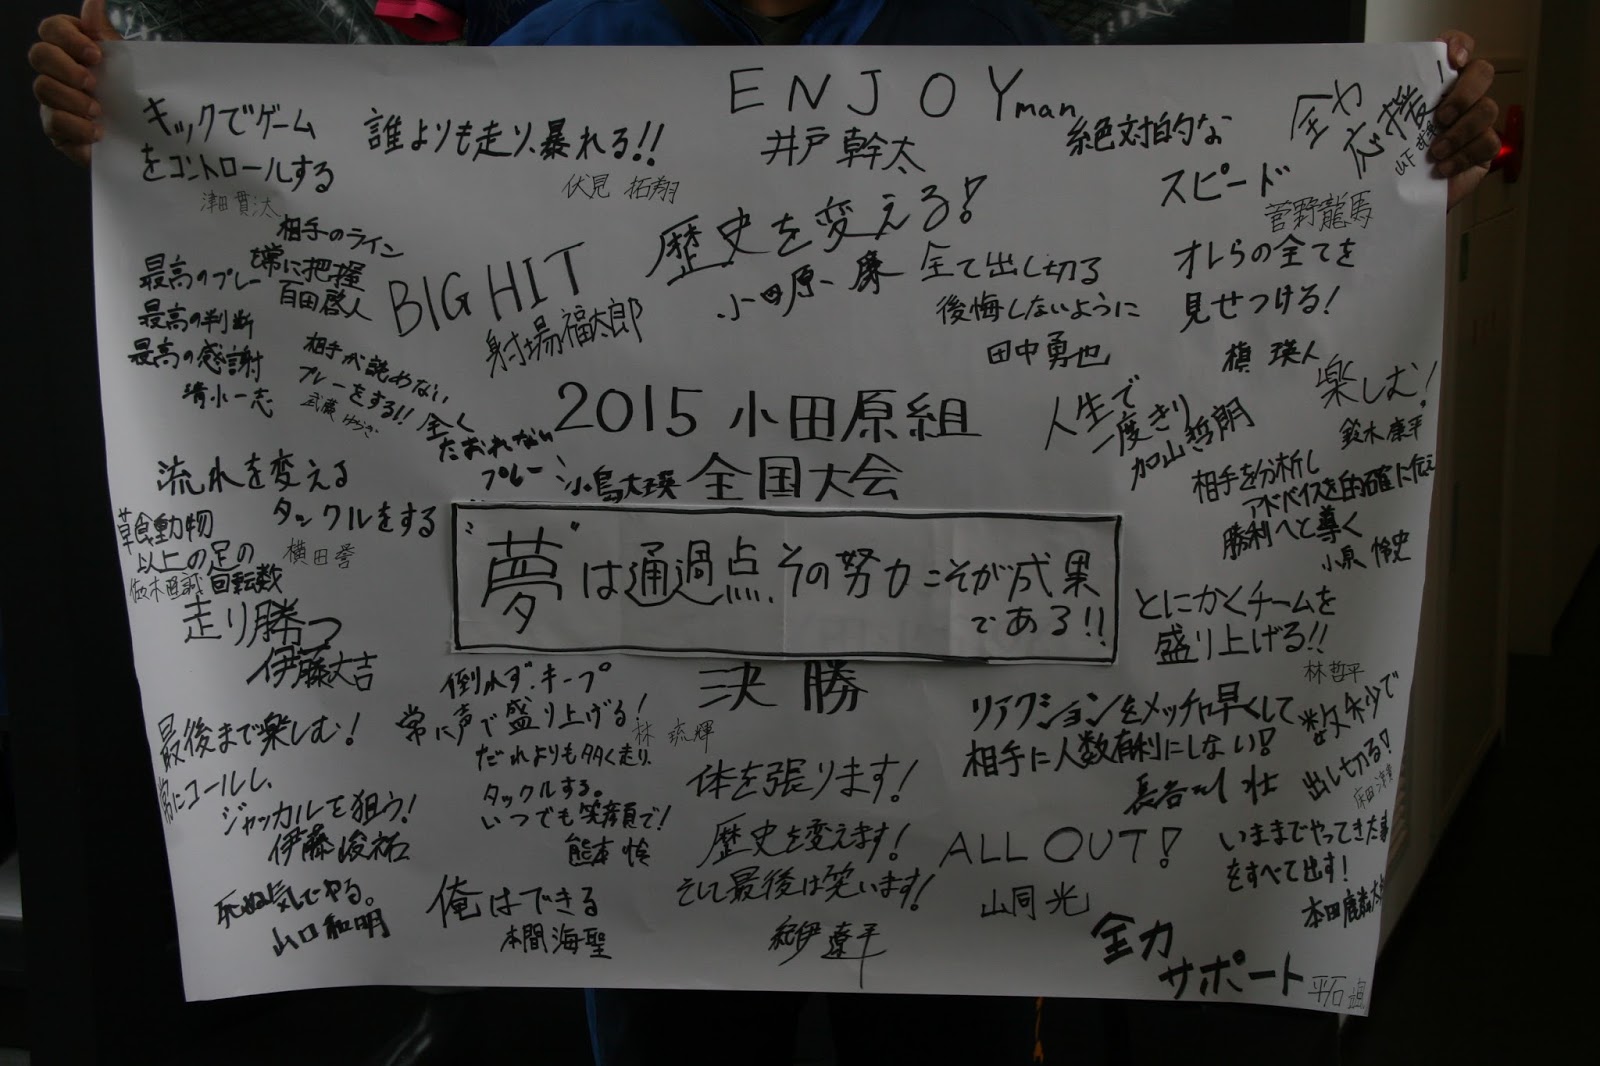 ENJOY man
井戸 幹太
キックでゲーム
をコントロールする
津田 貫太
誰よりも走り、暴れる!!
伏見 拓翔
絶対的な
スピード
菅野龍馬
全力
応援!
山下
相手のライン
を常に把握
百田啓人
最高のプレー
最高の判断
最高の感謝
清水一志
BIG HIT
射場福太郎
歴史を変える!
小田原一慶
全て出し切る
後悔しないように
田中勇也
オレらの全てを
見せつける!
槙 瑛人
相手が読めない
プレーをする!!
武藏 ゆうき
全く
たおれない
プレー
小島大瑛
2015 小田原組
全国大会
人生で
一度きり
加山哲朗
楽しむ!
鈴木康平
相手を分析し
アドバイスを的確に伝え
勝利へと導く
小原 怜史
流れを変える
タックルをする
横田誉
草食動物
以上の足の
回転数
佐々木
"夢"は通過点、その努力こそが成果
である!!
決勝
走り勝つ
伊藤大吉
とにかくチームを
盛り上げる!!
林哲平
倒れず、キープ
常に声で盛り上げる!
林 琉輝
最後まで楽しむ!
常にコールし、
ジャッカルを狙う!
伊藤俊祐
だれよりも多く走り、
タックルする。
いつでも笑顔で!
熊本 怜
体を張ります!
歴史を変えます!
そして最後は笑います!
紀伊遼平
リアクションをメッチャ早くして
相手に人数有利にしない!
長谷川 壮
数秒で
出し切る!
床田
ALL OUT!
山同 光
いままでやってきた事
をすべて出す!
本田鹿
死ぬ気でやる。
山口和明
俺はできる
本間海聖
全力
サポート
平石 颯